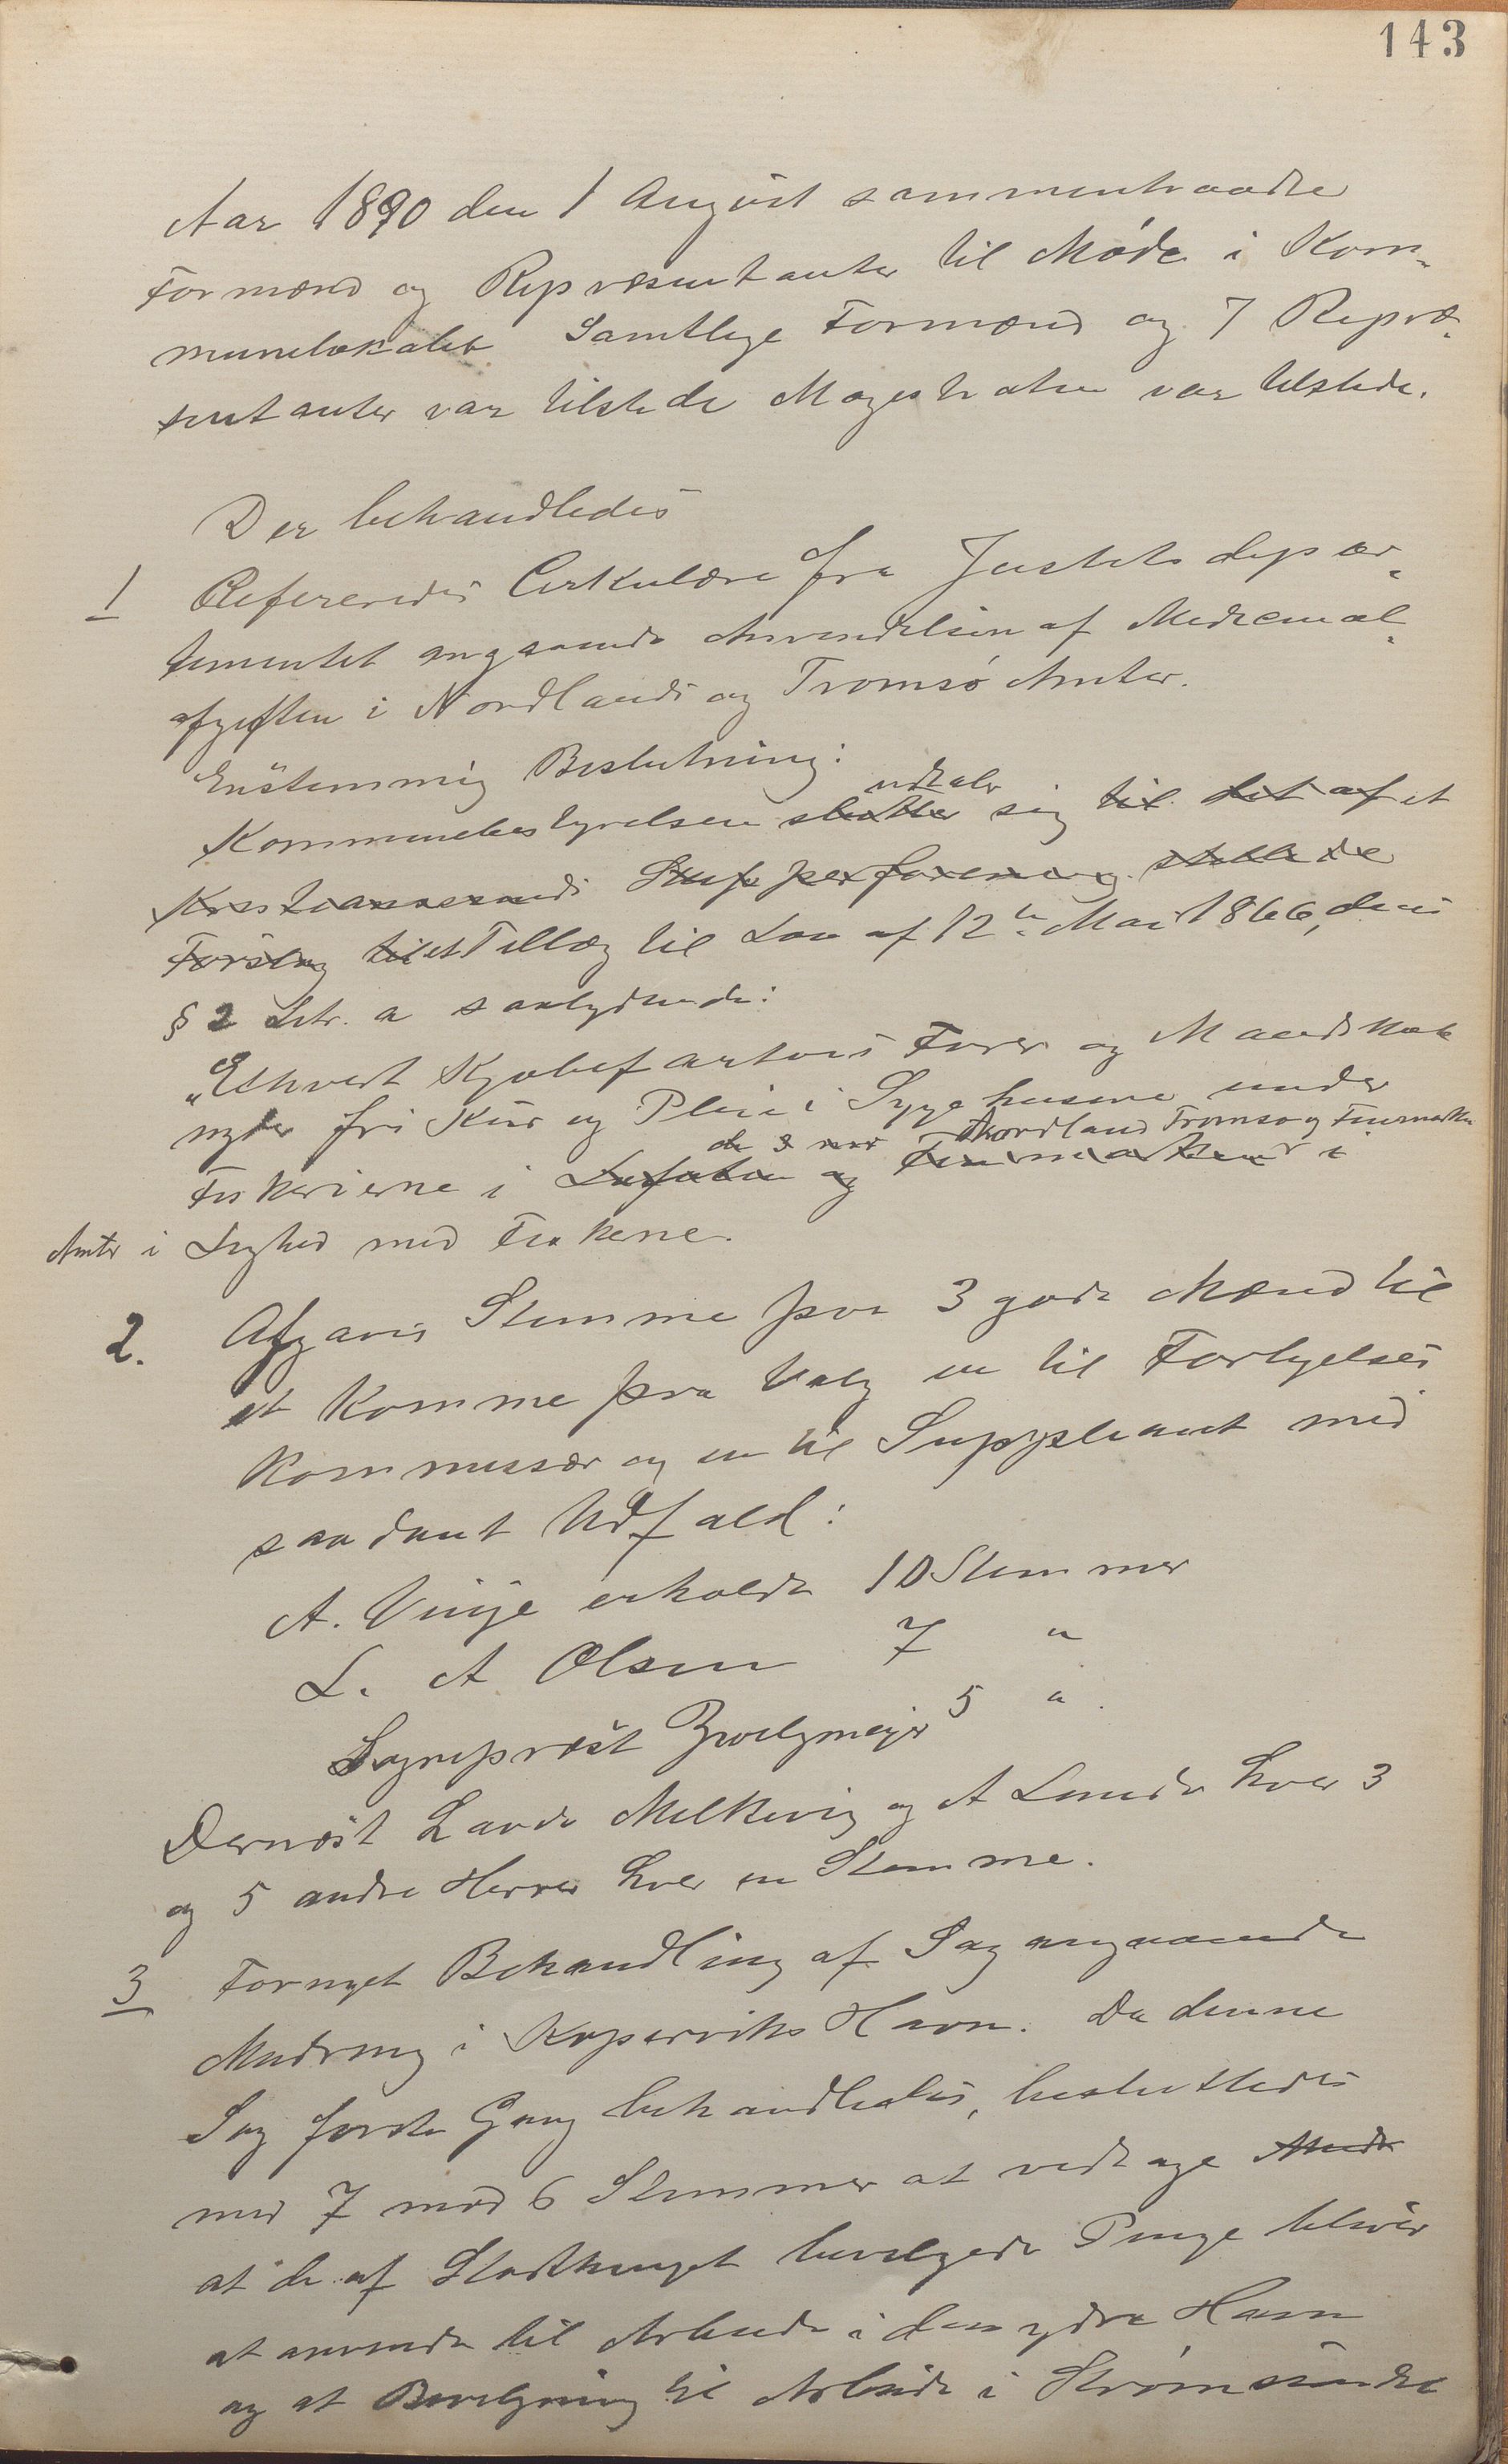 143
Aar 1890 den 1 August sammentraadte
Formænd og Repræsentanter til Møde i Kom-
munelokalet Samtlige Formænd og 7 Repræ-
sentanter var tilstede Magistraten var tilstede.
Der behandledes
1 Refereredes Cirkulære fra Justitsdepar-
tementet angaaende Anvendelsen af Medicinal-
afgiften i Nordlands og Tromsø Amter.
Enstemmig Beslutning:
udtaler
Kommunebestyrelsen slutter sig til det af et
Kristianssands Skipperforening stillede
Forslag til et Tillæg til Lov af 12te Mai 1866, dens
§ 2 Litr. a saalydende:
"Ethvert Kjøbefartøis Fører og Mandskab
nyder fri Kur og Pleie i Sygehusene under
de 3 Nordland Tromsø og Finmarken
Fiskerierne i Lofoten og Finmarken i
Amter i Lighed med Fiskerne.
2. Afgaves Stemme paa 3 gode Mænd til
at komme paa Valg en til Forligelses
kommissær og en til Suppleant med
saadant Udfald:
A. Vinje erholdt 10 Stemmer
L. A Olsen 7 "
Sogneprest Zwilgmeyer 5 "
Dernæst Lavds Melkevig og A Lunde hver 3
og 5 andre Herrer hver en Stemme.
3 Fornyet Behandling af Sag angaaende
Mudring i Koperviks Havn. Da denne
Sag første Gang behandledes, besluttedes
med 7 mod 6 Stemmer at vedtage Mudr
at de af Storthinget bevilgede Penge bliver
at anvende til Arbeide i den ydre Havn
og at Bevilgning til Arbeide i Strømsundet